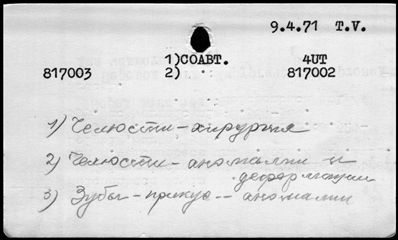 9.4.71 T.V.
1)СОАВТ. 4UT
817003 2) 817002
1) Челюсти - хирургия
2) Челюсти - аномалии и
деформации
3) Зубы - прикус -- аномалии